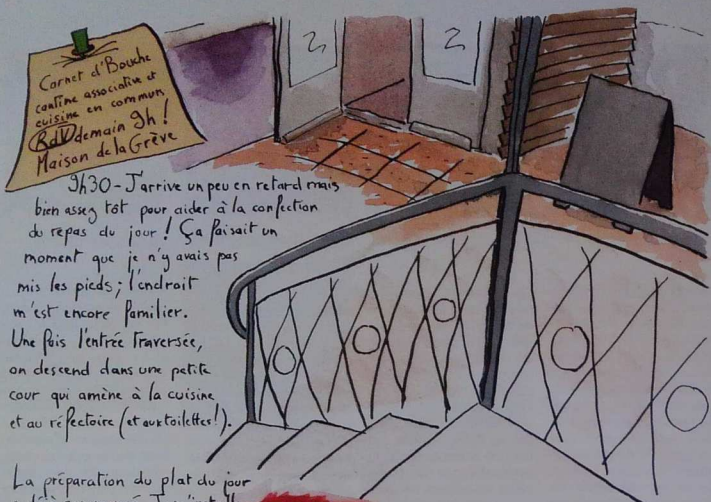 Carnet d'Bouche
cantine associative et
cuisine en commun
RdV demain 9h !
Maison de la Grève
9h30 - J'arrive un peu en retard mais
bien assez tôt pour aider à la confection
du repas du jour ! Ça faisait un
moment que je n'y avais pas
mis les pieds ; l'endroit
m'est encore familier.
Une fois l'entrée traversée,
on descend dans une petite
cour qui amène à la cuisine
et au réfectoire (et aux toilettes !).
La préparation du plat du jour